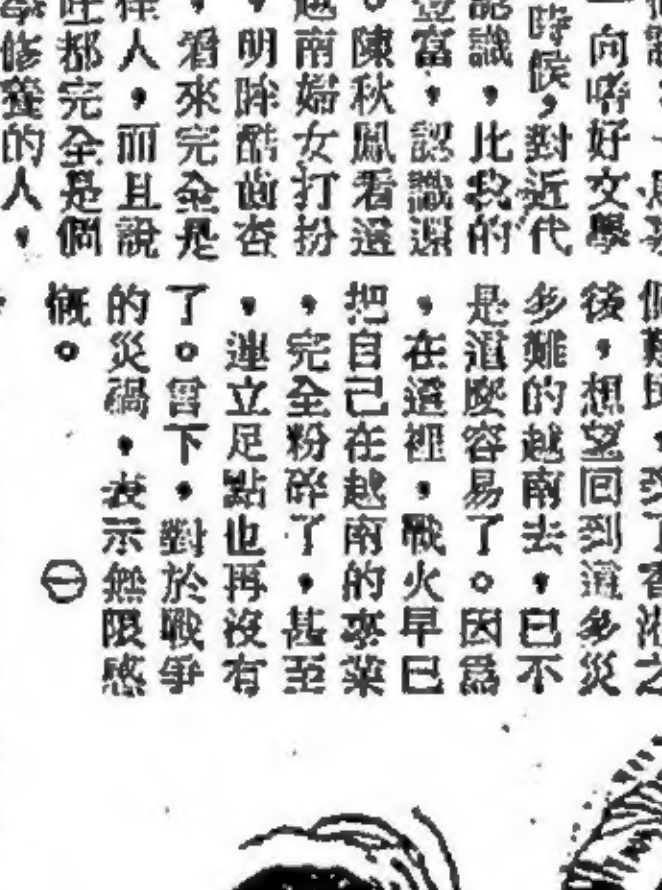 一向嗜好文學
時候，對近代
認識，比我的
豐富，認識還
。陳秋鳳看還
越南婦女打扮
，明眸酷齒杏
，看來完全是
佳人，而且說
吐都完全是個
修養的人，
後，想望回到這多災
多難的越南去，已不
是這麼容易了。因為
，在這裡，戰火早已
把自己在越南的家業
，完全粉碎了，甚至
，連立足點也再沒有
了。雪下，對於戰爭
的災禍，表示無限感
慨。㊀